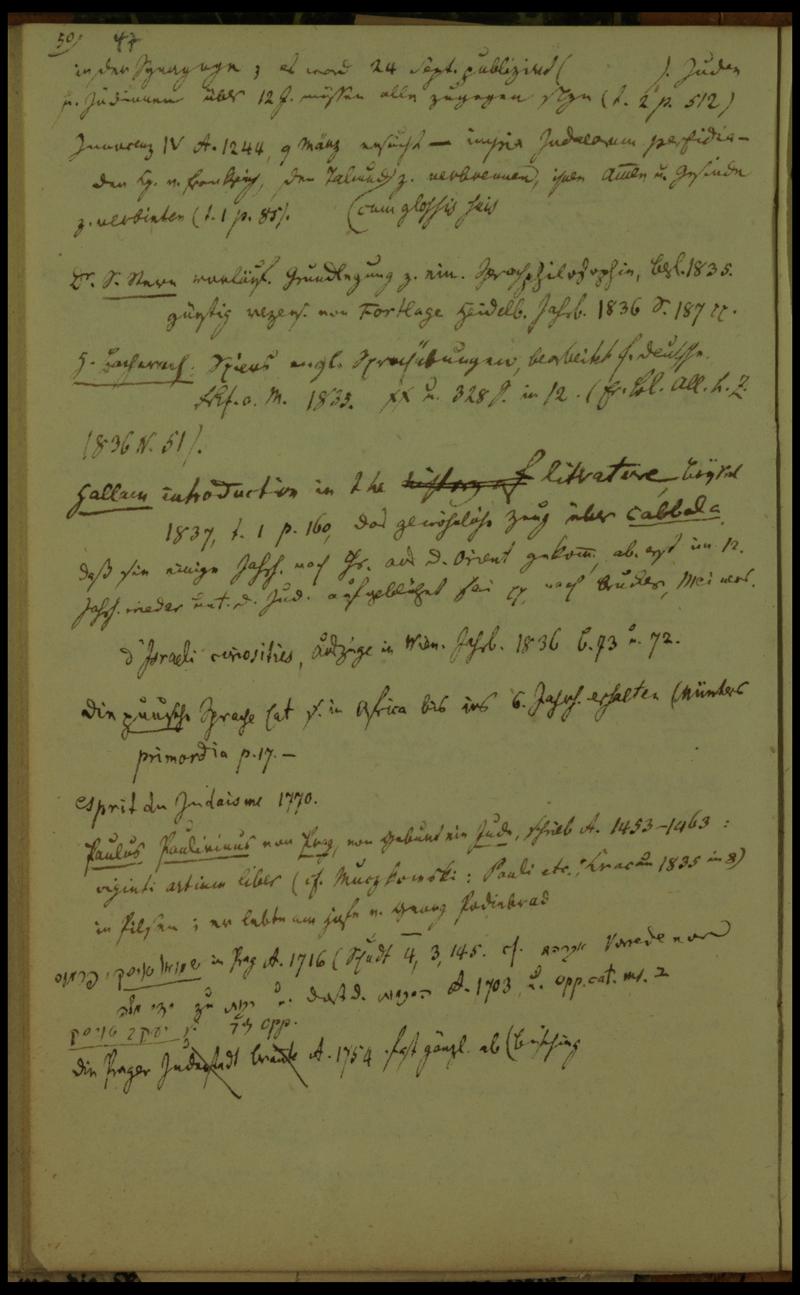 50) 47
in der Synagoge; es ward 24 Sept. publizirt ( ). Juden
u. Jüdinnen über 12 J. müssen alle zugegen seyn (t. 2 p. 512)
Innocenz IV A. 1244, 9 März ersucht — impia Judaeorum perfidia —
den Kg. v. Frankreich, den Talmud z. verbrennen, ihnen Amen u. Gesinde
z. verbieten (t. 1 p. 85). (cum glossis suis
Dr. S. Stern vorläuf. Grundlegung z. ein. Sprachphilosophie, Berl. 1835.
günstig rezens. von Fortlage Heidelb. Jahrb. 1836 S. 187 ff.
H. Bacharach: Spiers engl. Sprachübungen, bearbeitet f. Deutsche.
Frkf. a. M. 1835. XX u. 328 S. in 12. ( All. L. Z.
1836 N. 51).
Hallam introduction in the history of literature,
1837, t. 1 p. 160, das gewöhnliche Zeug über Cabbala,
daß sie einige Jahrh. nach Chr. aus d. Orient gekom̅, ab. erst im 12.
Jahrh. wieder unt. d. Jud. aufgeblühet sei nach Brucker, Meiners.
d'Israeli curiosities, Auszüge in Wien. Jahrb. 1836 B. 73 u. 72.
Die punische Sprache hat s. in Africa bis ins 6. Jahrh. erhalten (Münters
primordia p. 17. —
esprit du Judaisme 1770.
Paulus Paulirinus von Prag, von Geburt ein Jude, schrieb A. 1453–1463:
viginti artium liber (cf. Muczkowski: Pauli etc., Kracau 1835 in 8)
in Pilsen; er lebte am Hofe v. Georg Podiebrad
in Prag A. 1716 (Schudt 4, 3, 145. cf. Vorrede
zu u. A. 1703 u. opp. cat. ms.
opp.
Die Prager Judenstadt brannte A. 1754 fast gänzl. ab (Büsching